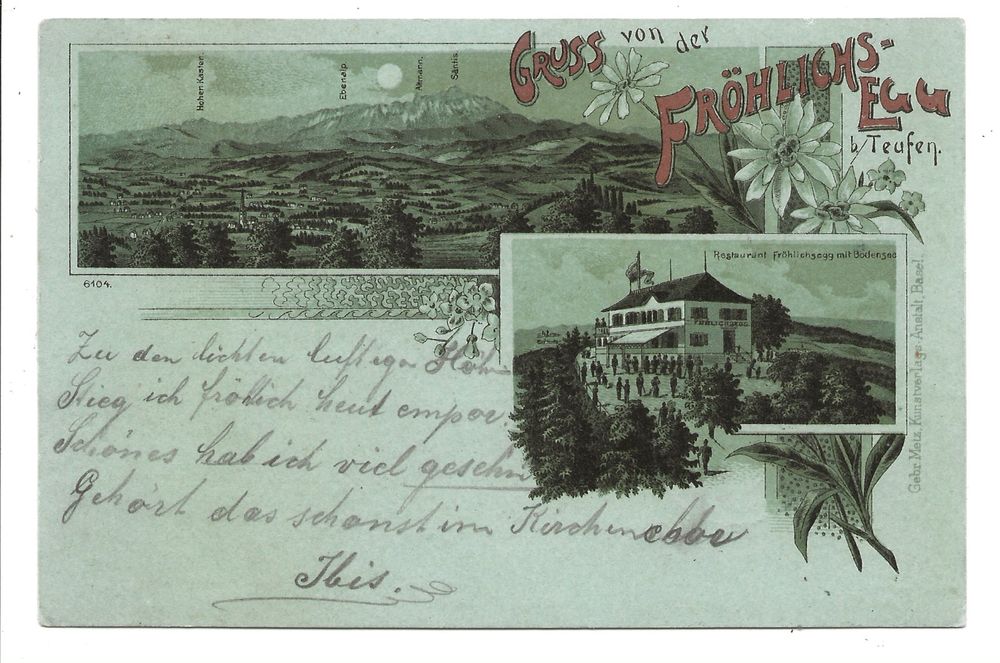 GRUSS von der
FRÖHLICHS-
EGG
b/Teufen.
Hohen Kasten.
Ebenalp.
Altmann.
Säntis.
6104.
Restaurant Fröhlichsegg mit Bodensee
FRÖHLICHSEGG
Gebr. Metz, Kunstverlags-Anstalt, Basel.
Zu den lichten luftegen Höhn
Stieg ich frölich heut empor.
Schönes hab ich viel gesehn
Gehört das schönst im Kirchen
Ibis.